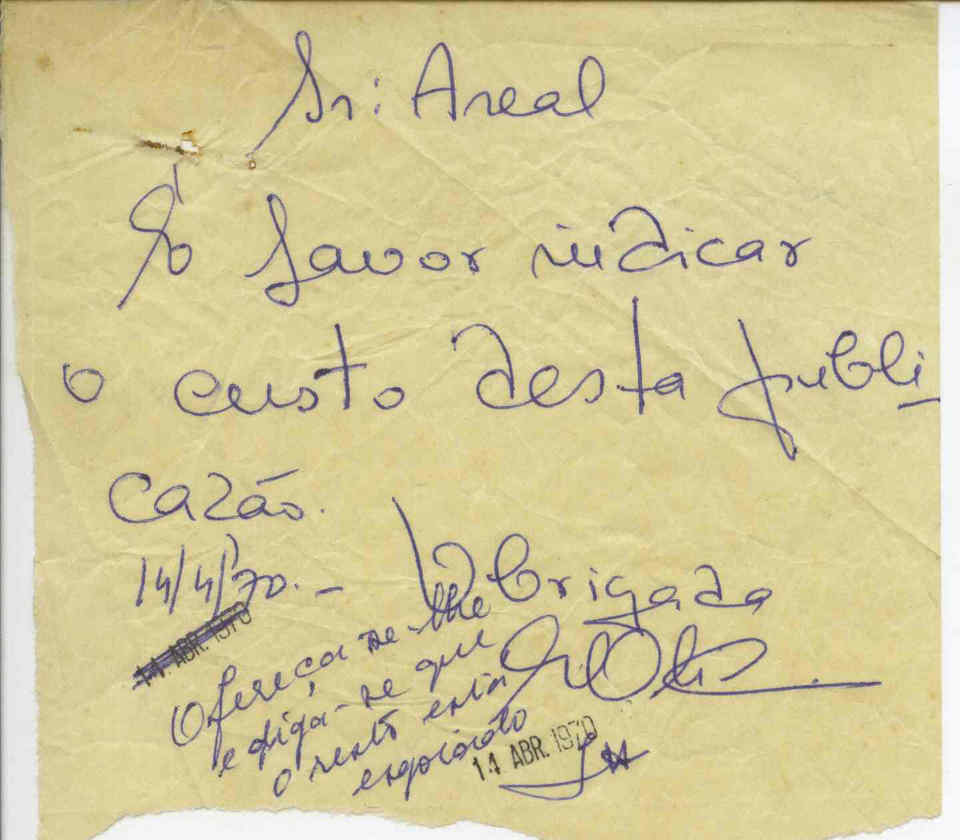 Sr: Areal
É favor indicar
o custo desta publi
cação.
14/4/70. -
Obrigada
14 ABR. 1970
Ofereça-se-lhe
e diga-se que
o resto está
esgotado
14 ABR. 1970